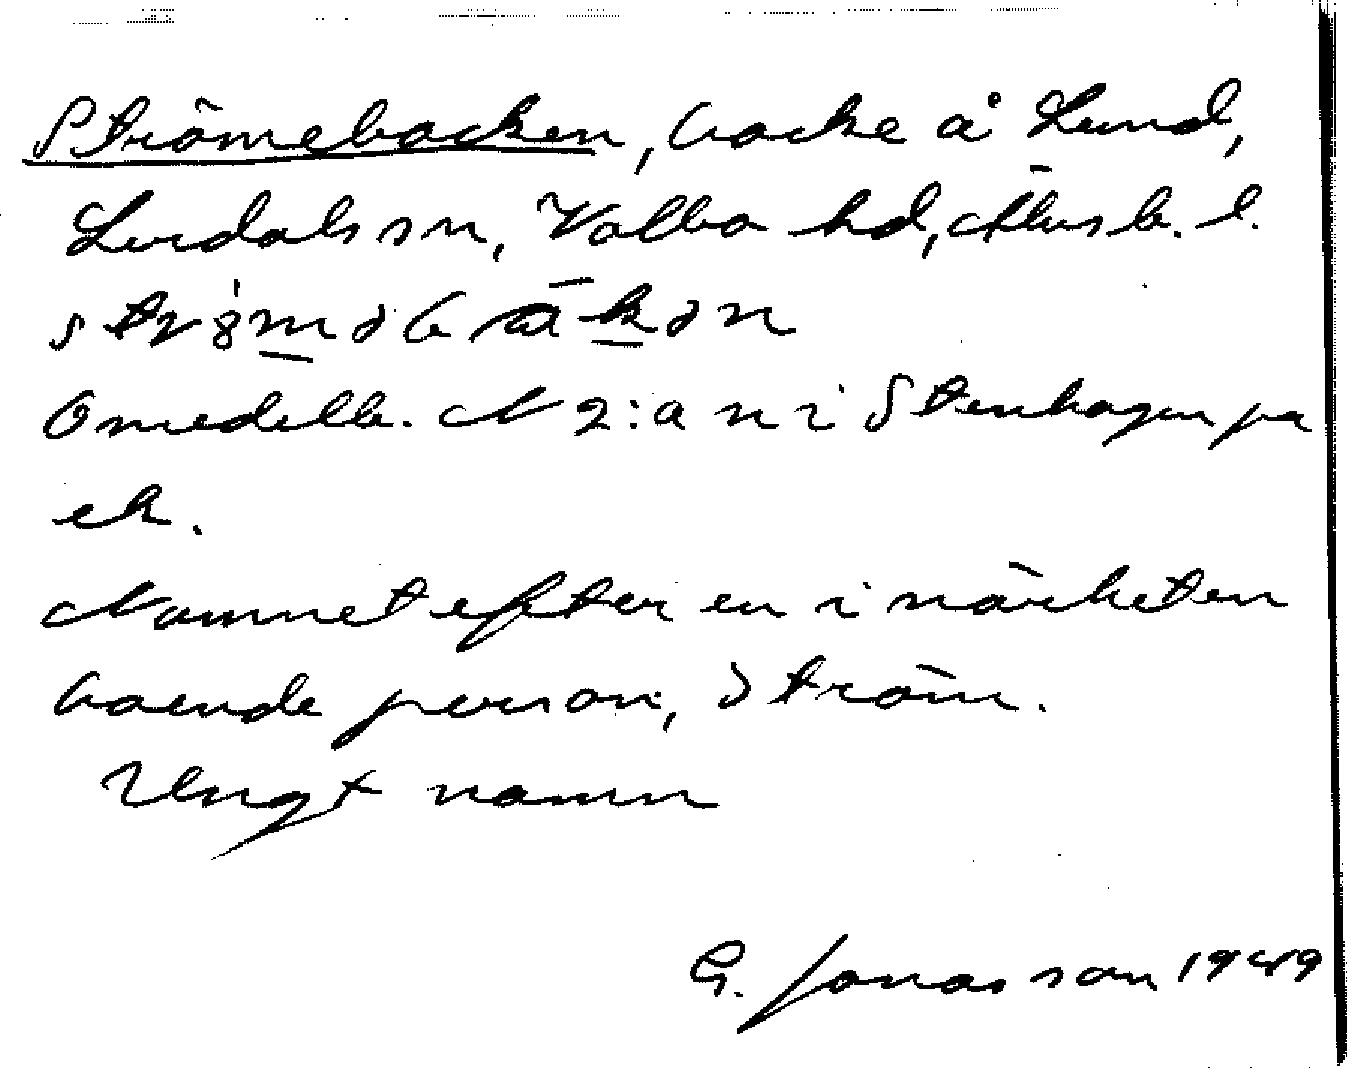 Strömebacken, backe å Lund,
Lerdals sn, Valbo hd, Älvsb. l.
Omedelb. N 2:a n i Stenhagen på
ek.
Namnet efter en i närheten
boende person, Ström.
Ungt namn
G. Jonasson 1949